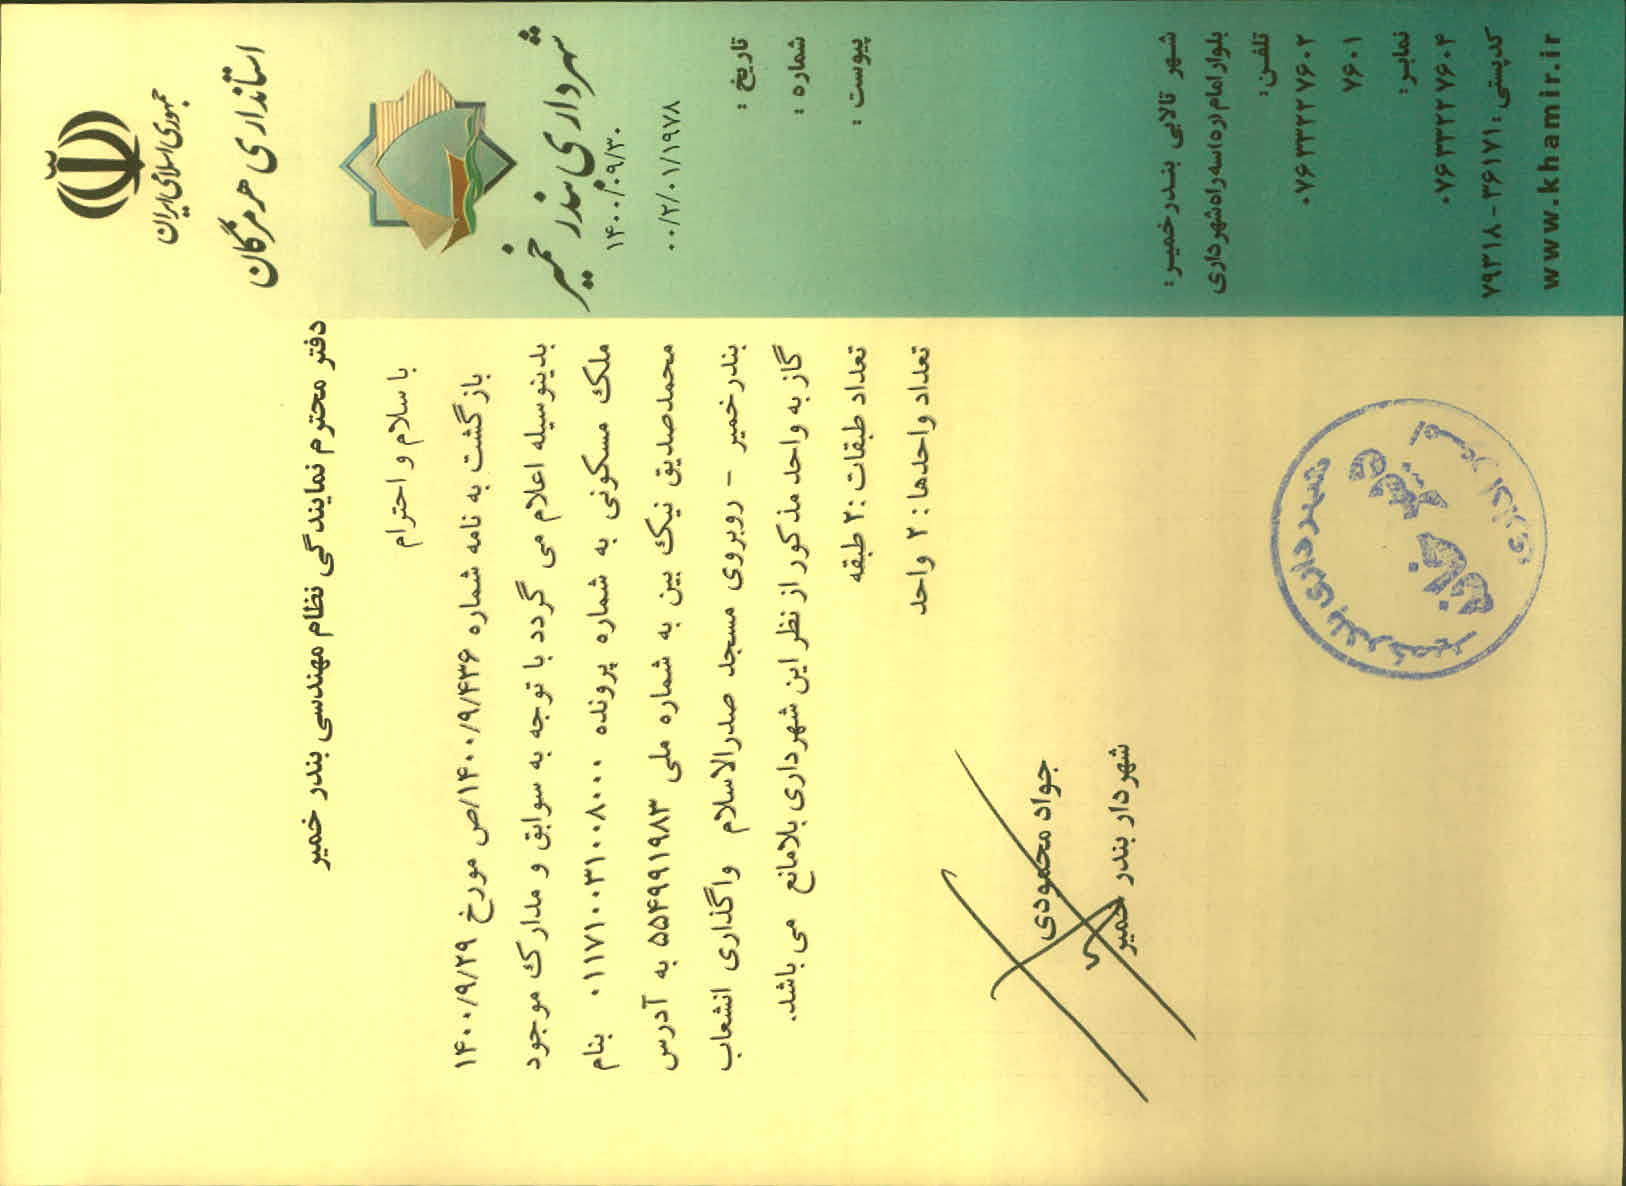 جمهوری اسلامی ایران
استانداری هرمزگان
شهرداری بندر خمیر
۱۴۰۰/۰۹/۳۰
۰۰/۲/۰۱/۱۹۷۸
تاریخ :
شماره :
پیوست :
دفتر محترم نمایندگی نظام مهندسی بندر خمیر
با سلام و احترام
بازگشت به نامه شماره ۱۴۰۰/۹/۴۳۶/ص مورخ ۱۴۰۰/۹/۲۹
بدینوسیله اعلام می گردد با توجه به سوابق و مدارک موجود
ملک مسکونی به شماره پرونده ۰۱۱۷۱۰۰۳۱۰۰۸۰۰۰ بنام
محمدصدیق نیک بین به شماره ملی ۵۵۴۹۹۱۹۸۳ به آدرس
بندرخمیر - روبروی مسجد صدرالاسلام واگذاری انشعاب
گاز به واحد مذکور از نظر این شهرداری بلامانع می باشد.
تعداد طبقات :۲ طبقه
تعداد واحدها : ۲ واحد
جواد محمودی
شهردار بندر خمیر
شهرداری بندر خمیر
شهر تالابی بندرخمیر:
بلوار امام(ره) سه راه شهرداری
تلفن:
۰۷۶۳۳۲۲۷۶۰۲
۷۶۰۱
نمابر:
۰۷۶۳۳۲۲۷۶۰۴
کدپستی: ۳۶۱۷۱-۷۹۳۱۸
www.khamir.ir